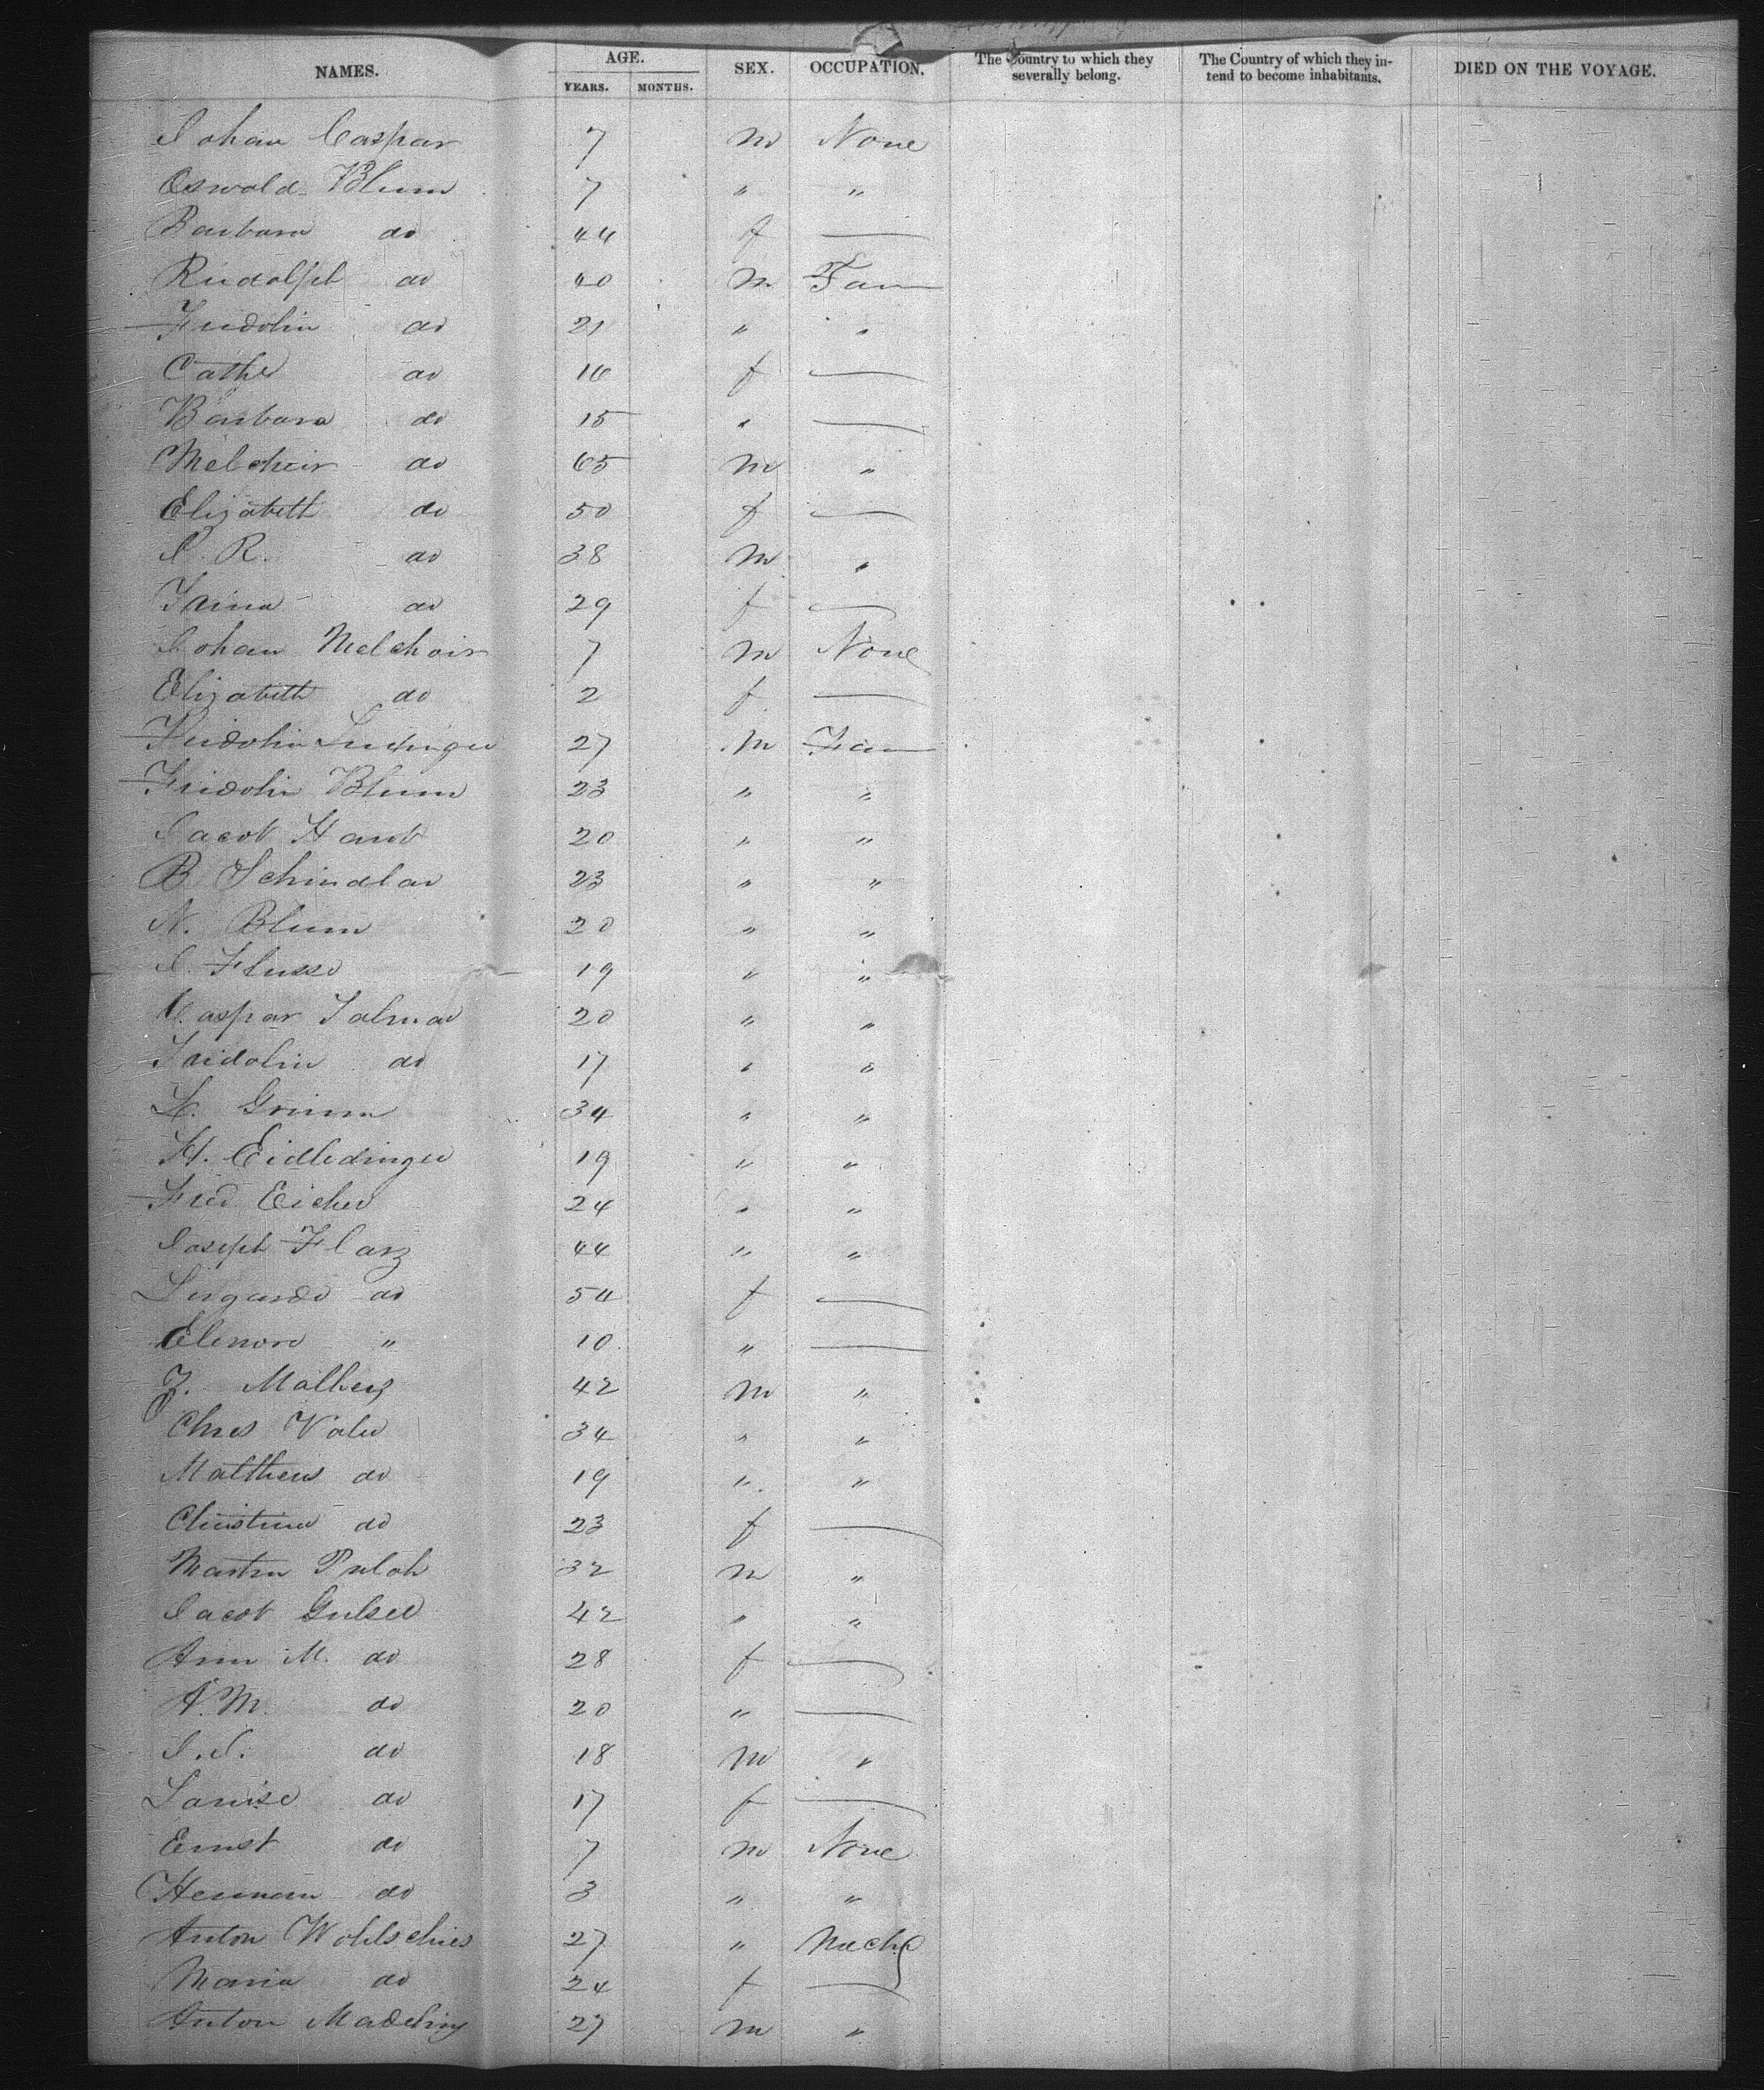 NAMES. AGE. SEX. OCCUPATION. The Country to which they severally belong. The Country of which they intend to become inhabitants. DIED ON THE VOYAGE.
YEARS. MONTHS.
Johan Caspar 7 m None
Oswald Blum 7 " "
Barbara do 44 f —
Rudolph do 40 m Farm
Fridolin do 21 " "
Cathe do 16 f —
Barbara do 15 " —
Melchoir do 65 m "
Elizabeth do 50 f —
J. R. do 38 m "
Trina do 29 f —
Johan Melchoir 7 m None
Elizabeth do 2 f —
Fridolin 27 m Farm
Fridolin Blum 23 " "
Jacob 20 " "
B Schindlar 23 " "
N. Blum 20 " "
J. Flusse 19 " "
Caspar Salmar 20 " "
Fridolin do 17 " "
H. Grimm 34 " "
H. Eidledinger 19 " "
Fred Eicher 24 " "
Joseph Flarz 44 " "
do 54 f —
Elenore " 10 " —
J. Mathey 42 m "
Chres Valer 34 " "
Mattheus do 19 " "
Christina do 23 f —
Martin 32 m "
Jacob Gulser 42 " "
Ann M. do 28 f —
A. M. do 20 " —
J. J. do 18 m "
Louise do 17 f —
Ernst do 7 m None
Herman do 3 " "
Anton Wohlschies 27 " Mech
Maria do 24 f —
Anton 27 m "